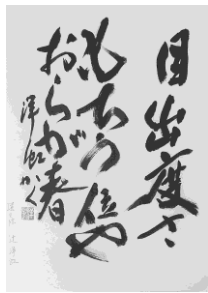 目出度さ
もちう位や
おらが春